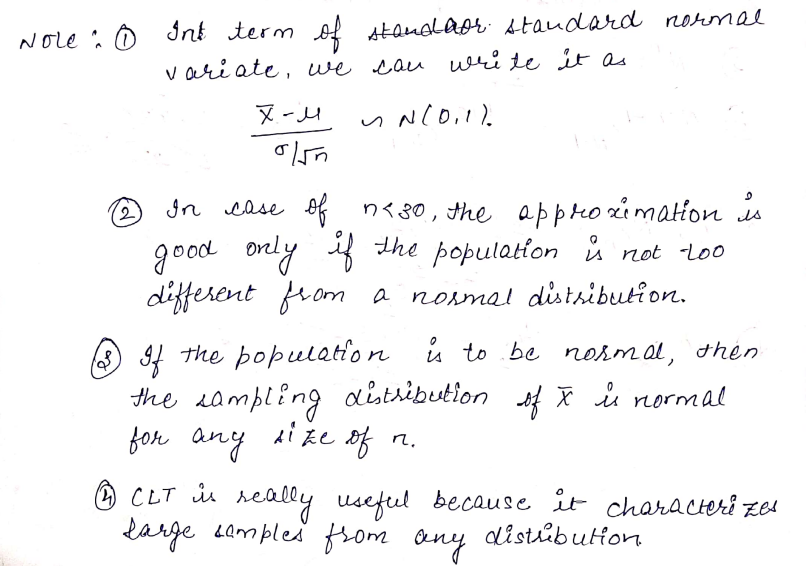 Note : ① Int term of standaor standard normal
variate, we can write it as
x̄ - μ / σ/√n ~ N(0,1).
② In case of n<30, the approximation is
good only if the population is not too
different from a normal distribution.
③ If the population is to be normal, then
the sampling distribution of x̄ is normal
for any size of n.
④ CLT is really useful because it characterizes
large samples from any distribution